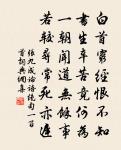 白首窮經恨不知
書生辛苦竟何為
一朝聞道無餘事
若較尋常死亦遲
張九成論語絕句一百
首詞典網集